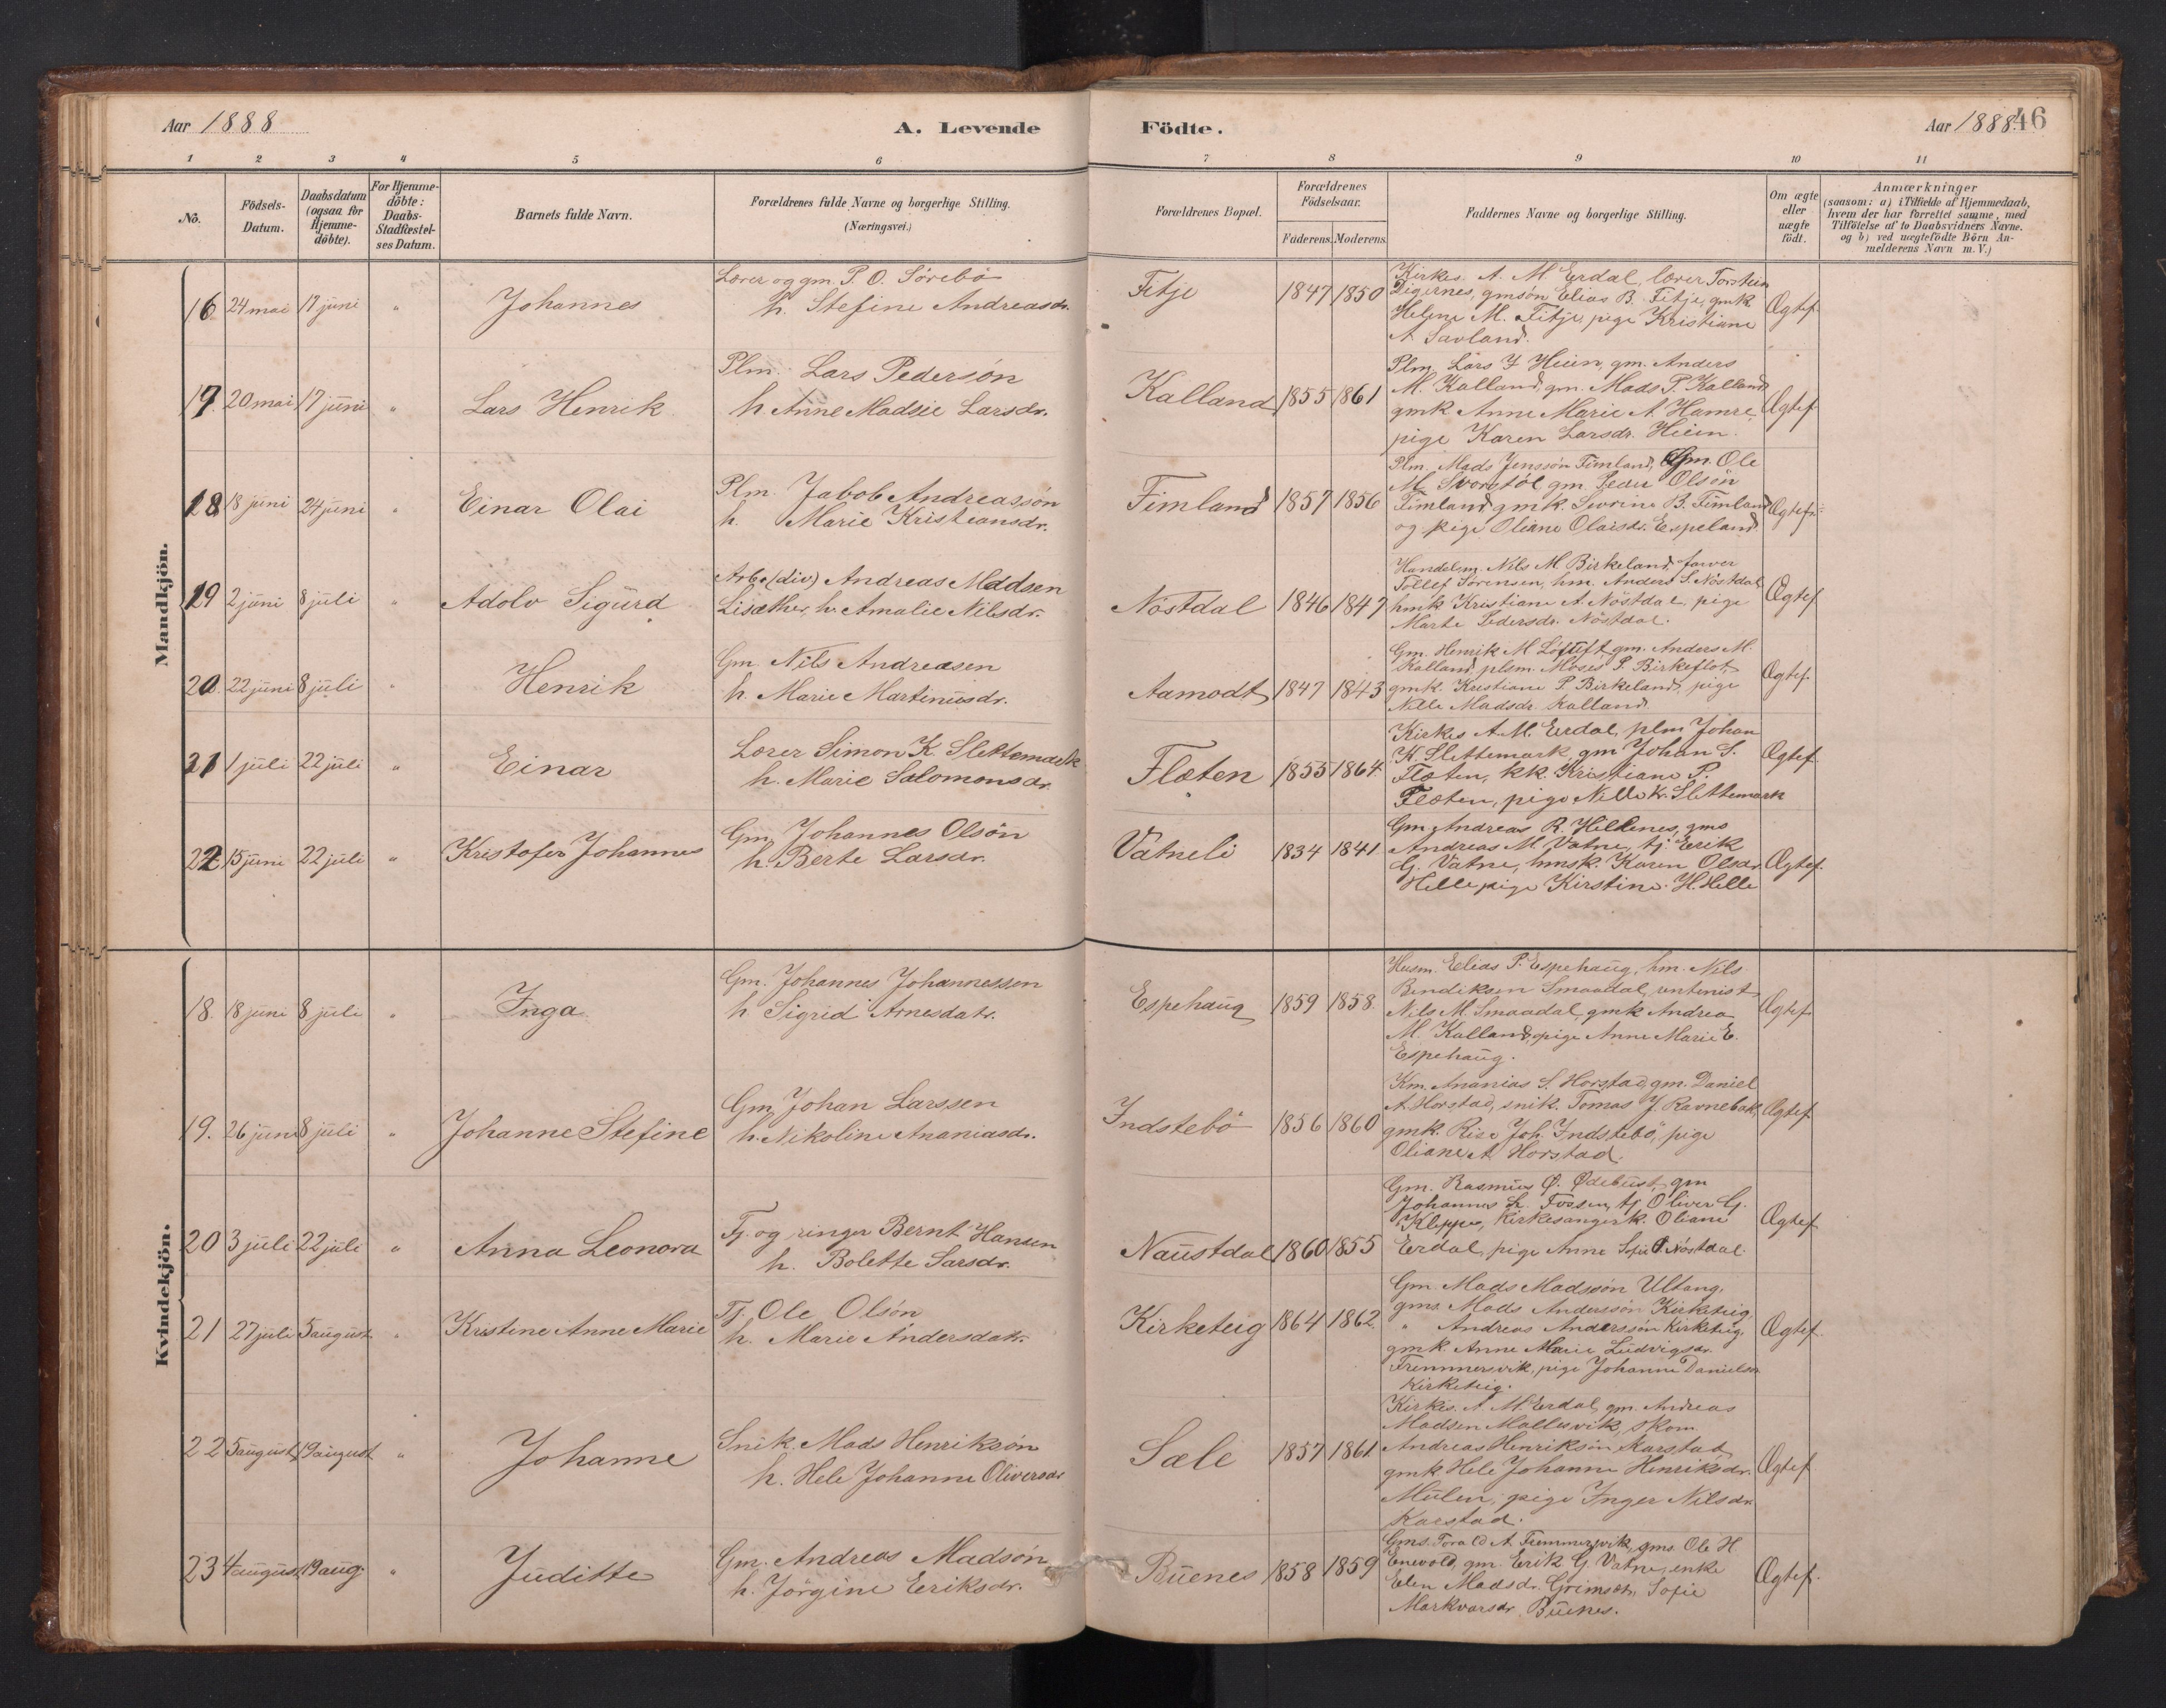 Aar 1888
A. Levende
Födte.
Aar 1888
46
1 2 3 4 5 6 7 8 9 10 11
No.
Födsels-Datum.
Daabsdatum (ogsaa for Hjemme-döbte).
For Hjemme-döbte: Daabs-Stadfæstel-ses Datum.
Barnets fulde Navn.
Forældrenes fulde Navne og borgerlige Stilling. (Næringsvei.)
Forældrenes Bopæl.
Forældrenes Födselsaar.
Faderens. Moderens.
Faddernes Navne og borgerlige Stilling.
Om ægte eller uægte födt.
Anmærkninger
(saasom: a) i Tilfælde af Hjemmedaab,
hvem der har forrettet samme, med
Tilföielse af to Daabsvidners Navne.
og b) ved uægtefödte Börn An-
melderens Navn m. V.)
Mandkjön.
16 24 mai 17 juni " Johannes
Lærer og gm. P. O. Sörebö
h. Stefine Andreasdr.
Fitje 1847 1850
Kirkes. A. M. Erdal, lærer Torstein
Digernes, gmsön Elias B. Fitje, gmk
Helene M. Fitje, pige Kristiane
A Savland.
Ægtef.
17. 20 mai 17 juni " Lars Henrik
Plm. Lars Pedersön
h Anne Madsje Larsdr.
Kalland 1855 1861
Plm. Lars J Heien, gm. Anders
M. Kalland, gm. Mads P. Kalland
gmk Anne Marie A. Hamre,
pige Karen Larsdr. Heien.
Ægtef
18 18 juni 24 juni " Einar Olai
Plm. Jabob Andreassön
h. Marie Kristiansdr.
Fimland 1857 1856
Plm. Mads Jenssön Fimland, Gm. Ole
M. Svorstöl gm. Peder Olsön
Fimland gmk. Severine B. Fimland
og pige Oliane Olaisdr. Espeland.
Ægtef.
19 2 juni 8 juli " Adolv Sigurd
Arb. (div) Andreas Madsen
Lisæther, h. Amalie Nilsdr.
Nöstdal 1846 1847
Handelsm. Nils M. Birkeland, farver
Tollef Sörensen, hm. Anders S. Nöstdal
hmk Kristiane A. Nöstdal, pige
Marte Pedersdr. Nöstdal.
Ægtef
20. 22 juni 8 juli " Henrik
Gm. Nils Andreasen
h. Marie Martinusdr.
Aamodt 1847 1843
Gm. Henrik M Löftuft, gm. Anders M.
Kalland, plsm. Moses P. Birkeflot,
gmk. Kristiane P. Birkeland, pige
Nille Madsdr. Kalland.
Ægtef.
21 1 juli 22 juli " Einar
Lærer Simon K. Slettemark
h. Marie Salomonsdr.
Flæten 1855 1864.
Kirkes A. M. Erdal, plm Johan
K. Slettemark, gm Johan S.
Flæten, kk. Kristiane P.
Flæten, pige Nille K. Slettemark
Ægtef
22. 15 juni 22 juli " Kristofer Johannes
Gm Johannes Olsön
h. Berte Larsdr.
Vatneli 1834 1841
Gm. Andreas R. Hillenes, gms
Andreas M Vatne, tj. Erik
G. Vatne, hmsk. Karen Olsdr
Helle, pige Kirstine H. Helle
Ægtef.
Kvindekjön.
18. 18 juni 8 juli " Inga
Gm. Johannes Johannessen
h Sigrid Arnesdatr.
Espehaug 1859 1858.
Husm. Elias P. Espehaug, hm. Nils
Bendiksen Smaadal, entenist
Nils M. Smaadal, gmk Andrea
M. Kalland, pige Anne Marie E.
Espehaug.
Ægtef
19. 26 juni 8 juli " Johanne Stefine
Gm Johan Larssen
h. Nikoline Ananiasdr.
Indstebö 1856 1860
Km. Ananias S. Horstad, gm. Daniel
A. Horstad, snik. Tomas J. Ravnebak,
gmk. Rise Joh. Indstebö, pige
Oliane A. Horstad.
Ægtef
20 3 juli 22 juli " Anna Leonora
Tj. og ringer Bernt Hansen
h. Bolette Larsdr.
Naustdal 1860 1855
Gm. Rasmus Ø. Ødebust, gm
Johannes L. Fossen, tj Oliver G.
Kleppe, kirkesangerk. Oliane
Erdal, pige Anne Sofie O. Nöstdal.
Ægtef
21 27 juli 5 august " Kristine Anne Marie
Tj. Ole Olsön
h. Marie Andersdatr.
Kirketeig 1864 1862.
Gm. Mads Madssön Ultang,
gms. Mads Anderssön Kirketeig,
" Andreas Anderssön Kirketeig.
gmk. Anne Marie Ludvigsdr.
Fremmersvik, pige Johanne Danielsdr
Kirketeig.
Ægtef.
22 5 august 19 august " Johanne
Snik. Mads Henriksön
h. Hele Johanne Oliversdr
Sæle 1857 1861.
Kirkes. A. M. Erdal, gm. Andreas
Madsen Mallesvik, skom.
Andreas Henriksön Karstad,
gmk Hele Johanne Henriksdr.
Mulen, pige Inger Nilsdr.
Karstad.
Ægtef
23 4 august 19 aug. " Juditte
Gm. Andreas Madsön
h. Jörgine Eriksdr.
Buenes 1858 1859
Gms. Torald A. Fremmersvik, gms. Ole H
Enevold, gm. Erik G. Vatne, enke
Elen Madsdr. Grimset, Sofie
Markvarsdr. Buenes.
Ægtef.